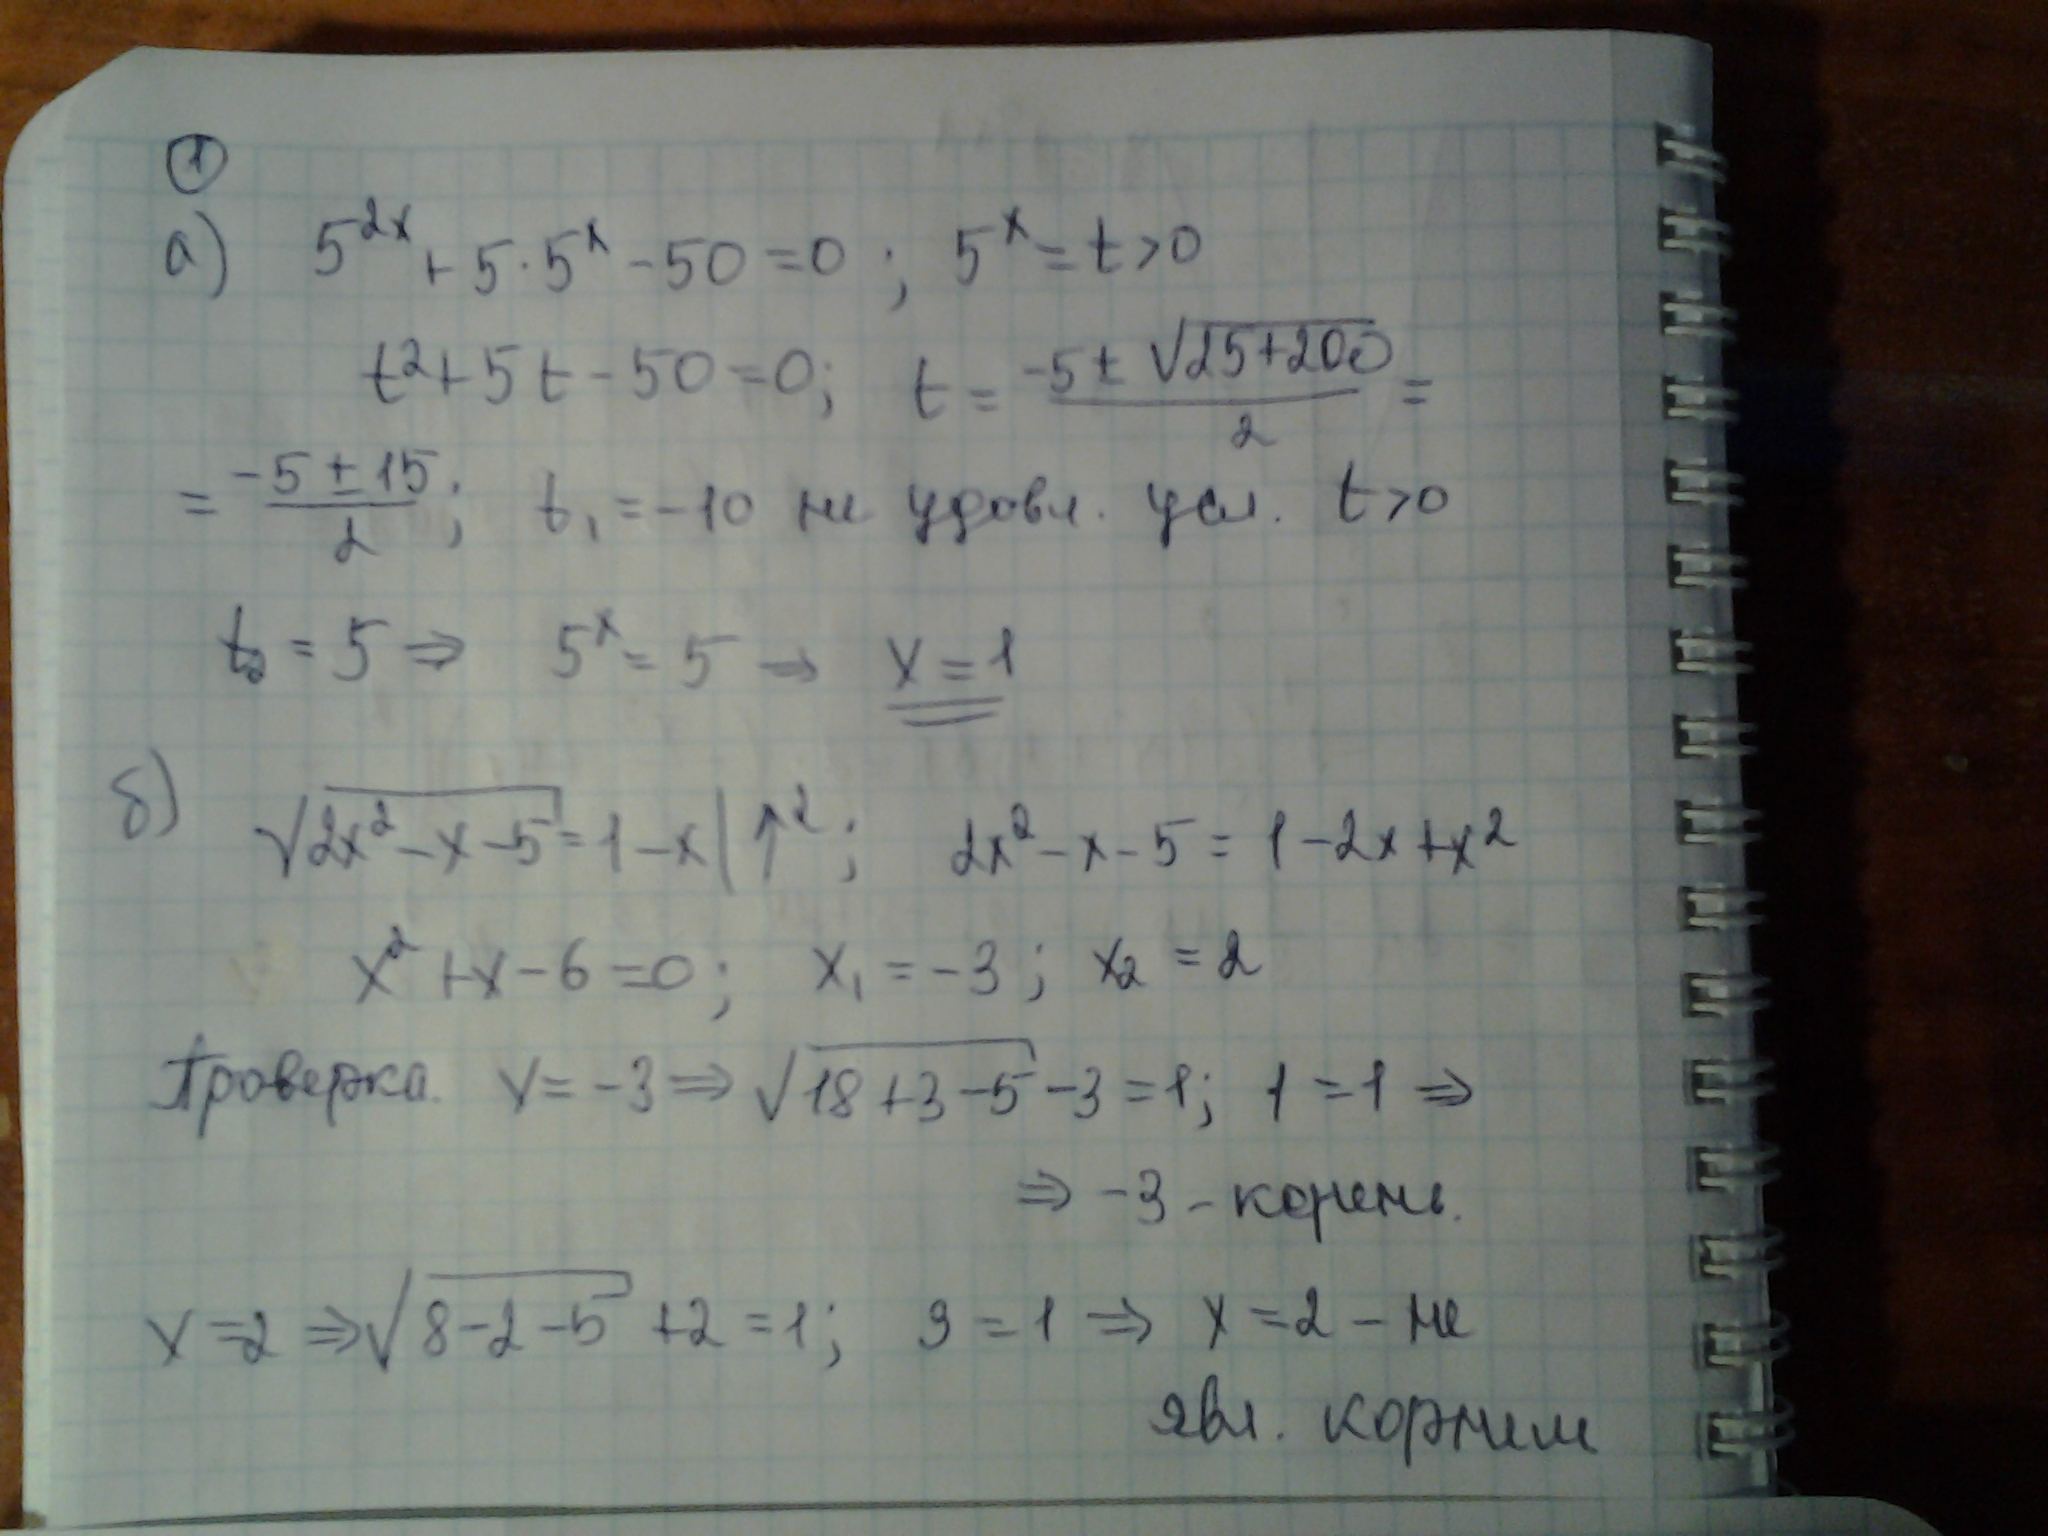 ①
а) 5^{2x} + 5·5^x - 50 = 0 ; 5^x = t > 0
t² + 5t - 50 = 0; t = \frac{-5 ± √(25+200)}{2} =
= \frac{-5 ± 15}{2}; t₁ = -10 не удовл. усл. t > 0
t₂ = 5 ⇒ 5^x = 5 ⇒ x = 1
б) √(2x² - x - 5) = 1 - x | ↑²; 2x² - x - 5 = 1 - 2x + x²
x² + x - 6 = 0; x₁ = -3; x₂ = 2
Проверка. x = -3 ⇒ √(18 + 3 - 5) - 3 = 1; 1 = 1 ⇒
⇒ -3 - корень.
x = 2 ⇒ √(8 - 2 - 5) + 2 = 1; 3 = 1 ⇒ x = 2 - не
явл. корнем